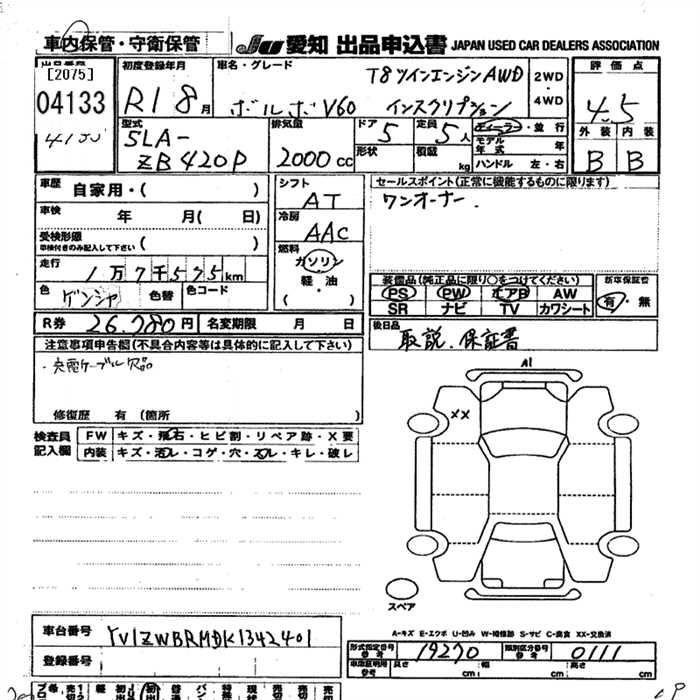 車内保管・守衛保管
JU 愛知 出品申込書 JAPAN USED CAR DEALERS ASSOCIATION
[2075]
04133
初度登録年月
R1 8月
車名・グレード
T8ツインエンジンAWD
ボルボV60 インスクリプション
2WD
・
4WD
評価点
4.5
外装 内装
B B
型式
5LA-
ZB420P
排気量
2000cc
ドア
5
形状
定員
5人
積載
kg
ディーラー・並行
モデル年式 年
ハンドル 左・右
車歴 自家用・( )
車検 年 月( 日)
受検形態
車検付きのみ記入して下さい ( )
走行 1万7千575km
色 ゲンシャ 色替 色コード
R券 26,780円 名変期限 月 日
シフト
AT
冷房
AAC
燃料
ガソリン
軽・油
( )
セールスポイント(正常に機能するものに限ります)
ワンオーナー.
装備品(純正品に限り○をつけてください)
PS PW エアB AW
SR ナビ TV カワシート
新車保証書
有・無
後日品
取説.保証書
注意事項申告欄(不具合内容等は具体的に記入して下さい)
・充電ケーブル欠品
修復歴 有 (箇所 )
検査員
記入欄
FW キズ・飛石・ヒビ割・リペア跡・X要
内装 キズ・汚レ・コゲ・穴・スレ・キレ・破レ
A1
XX
スペア
A-キズ E-エクボ U-凹み W-補修跡 S-サビ C-腐食 XX-交換済
車台番号 YV1ZWBRMDK1342401
登録番号
形式指定番号
参考 19270
類別区分番号
参考 0111
車庫証明用
参考
長さ cm 幅 cm 高さ cm